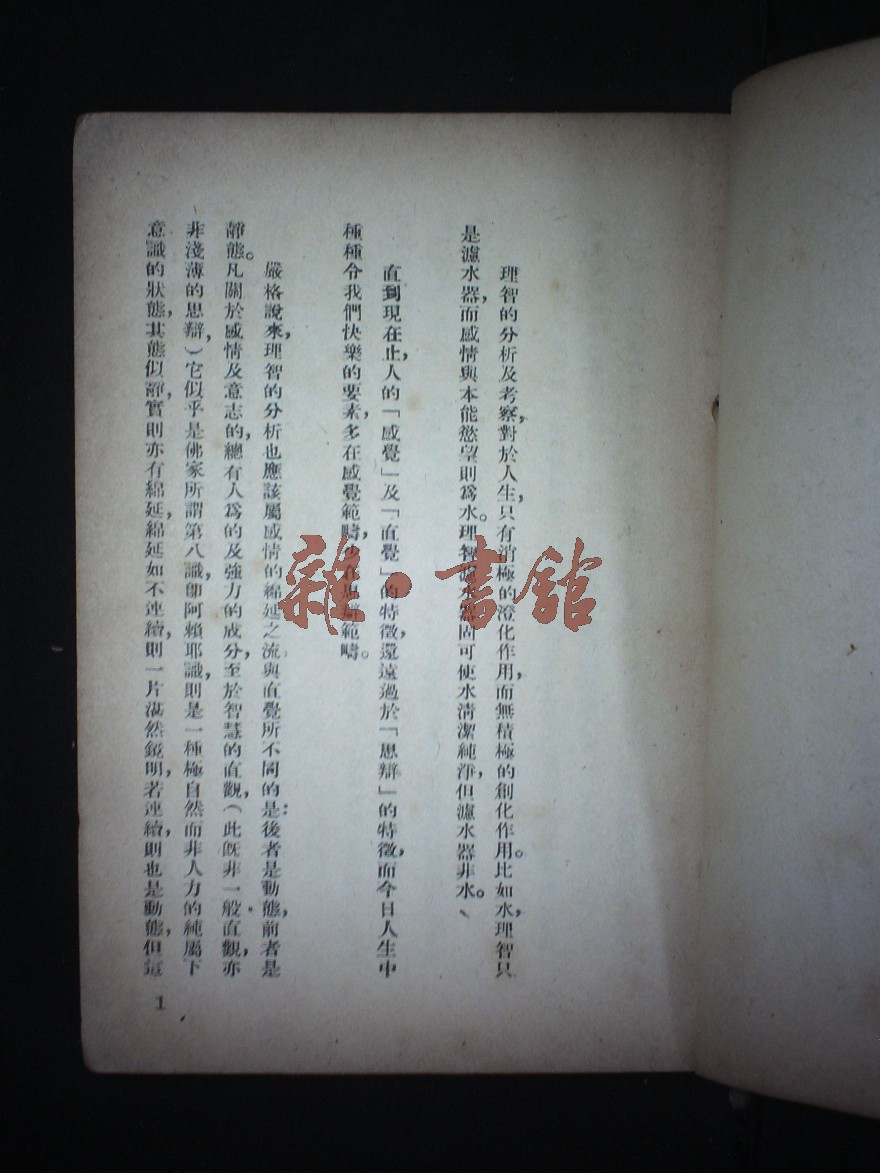 理智的分析及考察,對於人生,只有消極的澄化作用,而無積極的創化作用。比如水,理智只
是濾水器,而感情與本能慾望則爲水。理智濾水器固可使水清潔純淨,但濾水器非水。
直到現在止,人的「感覺」及「直覺」的特徵,還遠過於「思辯」的特徵,而今日人生中
種種令我們快樂的要素,多在感覺範疇,少在思辯範疇。
嚴格說來,理智的分析也應該屬感情的綿延之流,與直覺所不同的是:後者是動態,前者是
靜態。凡關於感情及意志的,總有人爲的及強力的成分,至於智慧的直觀,(此旣非一般直觀,亦
非淺薄的思辯,)它似乎是佛家所謂第八識,卽阿賴耶識,則是一種極自然而非人力的純屬下
意識的狀態,其態似靜,實則亦有綿延,綿延如不連續,則一片湛然鏡明,若連續,則也是動態,但這
1
雜·書館